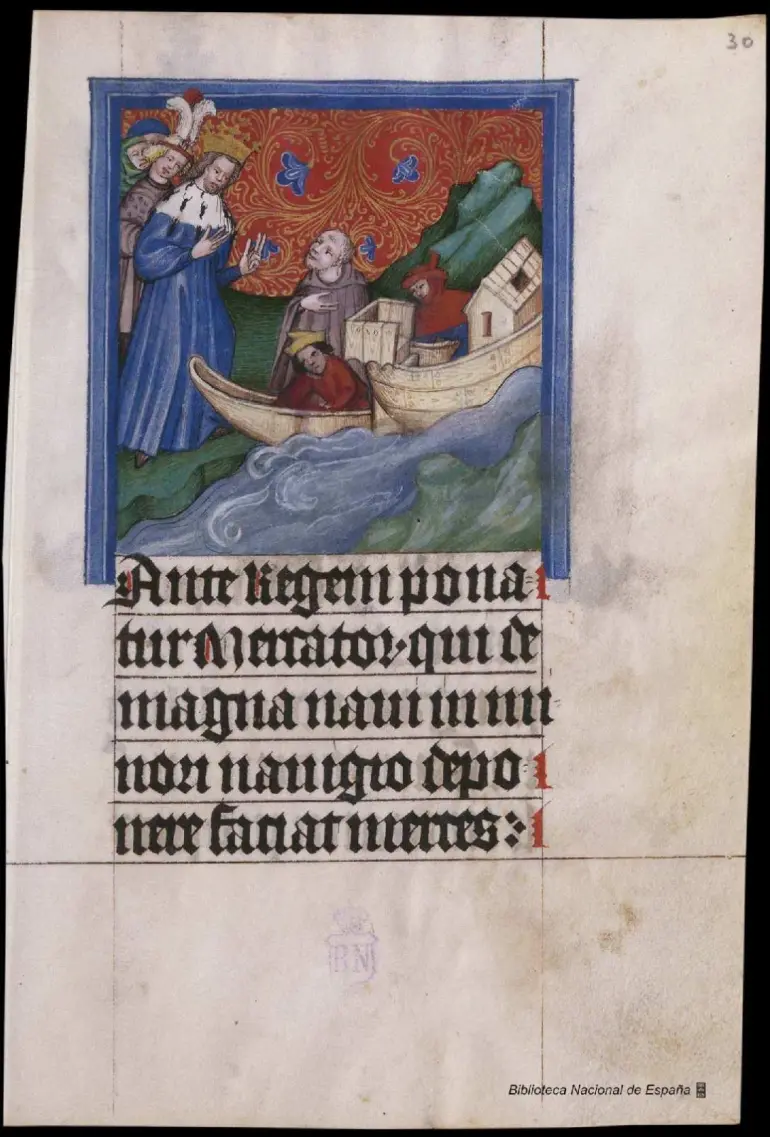 30
Ante Regem pona
tur Mercator qui de
magna naui in mi
nori nauigio depo
nere faciat merces :
BN
Biblioteca Nacional de España